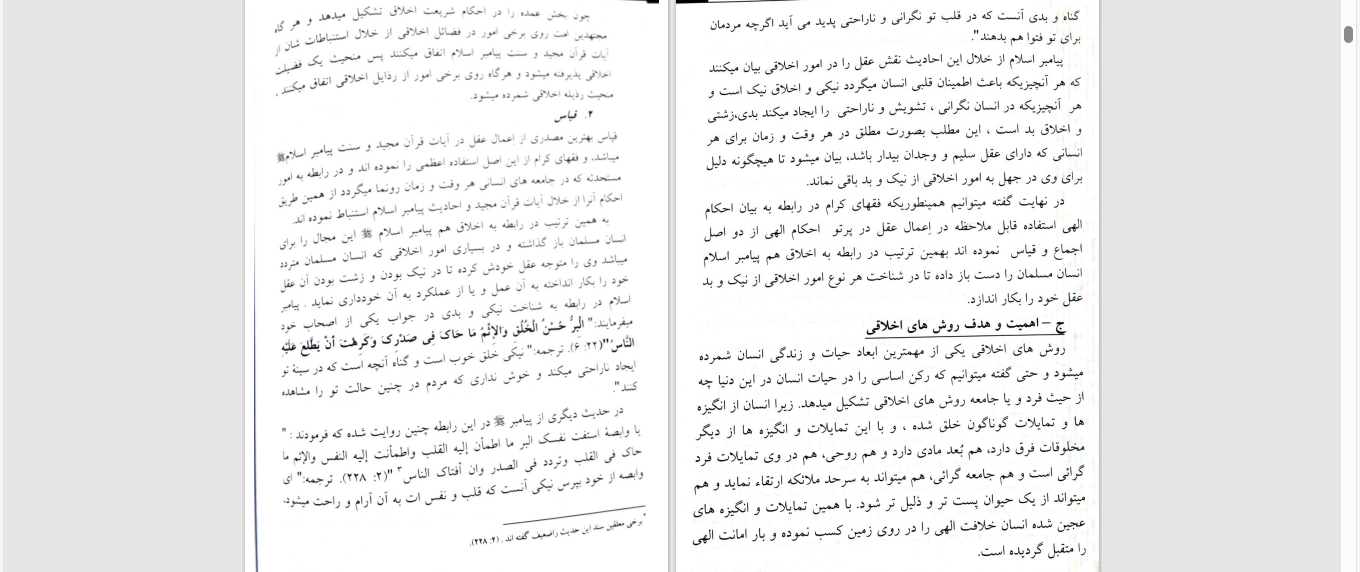 چون بخش عمده را در احکام شریعت اخلاق تشکیل میدهد و هر گاه
مجتهدین امت روی برخی امور در فضائل اخلاقی از خلال استنباطات شان از
آیات قرآن مجید و سنت پیامبر اسلام اتفاق میکنند پس منحیث یک فضیلت
اخلاقی پذیرفته میشود و هرگاه روی برخی امور از رذایل اخلاقی اتفاق میکنند ،
منحیث رذیله اخلاقی شمرده میشود.
۲. قیاس
قیاس بهترین مصدری از اِعمال عقل در آیات قرآن مجید و سنت پیامبر اسلامﷺ
میباشد، و فقهای کرام از این اصل استفاده اعظمی را نموده اند و در رابطه به امور
مستحدثه که در جامعه های انسانی هر وقت و زمان رونما میگردد از همین طریق
احکام آنرا از خلال آیات قرآن مجید و احادیث پیامبر اسلام استنباط نموده اند.
به همین ترتیب در رابطه به اخلاق هم پیامبر اسلام ﷺ این مجال را برای
انسان مسلمان باز گذاشته و در بسیاری امور اخلاقی که انسان مسلمان متردد
میباشد وی را متوجه عقل خودش کرده تا در نیک بودن و زشت بودن آن عقل
خود را بکار انداخته به آن عمل و یا از عملکرد به آن خودداری نماید . پیامبر
اسلام در رابطه به شناخت نیکی و بدی در جواب یکی از اصحاب خود
میفرمایند:" الْبِرُّ حُسْنُ الْخُلُقِ وَالإِثْمُ مَا حَاكَ فِى صَدْرِكَ وَكَرِهْتَ أَنْ يَطَّلِعَ عَلَيْهِ
النَّاسُ"(۲۲: ۶). ترجمه:" نیکی خلق خوب است و گناه آنچه است که در سینۀ تو
ایجاد ناراحتی میکند و خوش نداری که مردم در چنین حالت تو را مشاهده
کنند".
در حدیث دیگری از پیامبر ﷺ در این رابطه چنین روایت شده که فرمودند : "
یا وابصة استفت نفسک البر ما اطمأن إليه القلب واطمأنت إليه النفس والإثم ما
حاک فی القلب وتردد فی الصدر وان أفتاک الناس۳ "(۲: ۲۲۸). ترجمه:" ای
وابصه از خود بپرس نیکی آنست که قلب و نفس ات به آن آرام و راحت میشود،
۳برخی معلقین سند این حدیث راضعیف گفته اند . (۲: ۲۲۸).
گناه و بدی آنست که در قلب تو نگرانی و ناراحتی پدید می آید اگرچه مردمان
برای تو فتوا هم بدهند".
پیامبر اسلام از خلال این احادیث نقش عقل را در امور اخلاقی بیان میکنند
که هر آنچیزیکه باعث اطمینان قلبی انسان میگردد نیکی و اخلاق نیک است و
هر آنچیزیکه در انسان نگرانی ، تشویش و ناراحتی را ایجاد میکند بدی،زشتی
و اخلاق بد است ، این مطلب بصورت مطلق در هر وقت و زمان برای هر
انسانی که دارای عقل سلیم و وجدان بیدار باشد، بیان میشود تا هیچگونه دلیل
برای وی در جهل به امور اخلاقی از نیک و بد باقی نماند.
در نهایت گفته میتوانیم همینطوریکه فقهای کرام در رابطه به بیان احکام
الهی استفاده قابل ملاحظه در اِعمال عقل در پرتو احکام الهی از دو اصل
اجماع و قیاس نموده اند بهمین ترتیب در رابطه به اخلاق هم پیامبر اسلام
انسان مسلمان را دست باز داده تا در شناخت هر نوع امور اخلاقی از نیک و بد
عقل خود را بکار اندازد.
ج – اهمیت و هدف روش های اخلاقی
روش های اخلاقی یکی از مهمترین ابعاد حیات و زندگی انسان شمرده
میشود و حتی گفته میتوانیم که رکن اساسی را در حیات انسان در این دنیا چه
از حیث فرد و یا جامعه روش های اخلاقی تشکیل میدهد. زیرا انسان از انگیزه
ها و تمایلات گوناگون خلق شده ، و با این تمایلات و انگیزه ها از دیگر
مخلوقات فرق دارد، هم بُعد مادی دارد و هم روحی، هم در وی تمایلات فرد
گرائی است و هم جامعه گرائی، هم میتواند به سرحد ملائکه ارتقاء نماید و هم
میتواند از یک حیوان پست تر و ذلیل تر شود. با همین تمایلات و انگیزه های
عجین شده انسان خلافت الهی را در روی زمین کسب نموده و بار امانت الهی
را متقبل گردیده است.